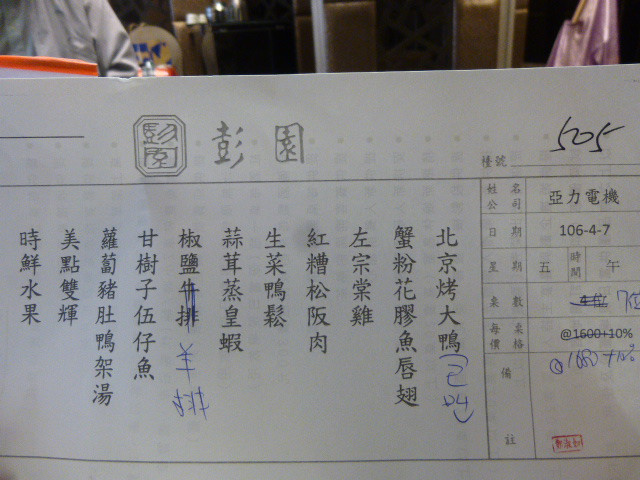 彭園
彭園
505
樓號
姓名
公司
亞力電機
日期
106-4-7
星期
五
時間
午
桌數
7位
每桌
價格
@1600+10%
@1680+10%
備註
北京烤大鴨(已叫)
蟹粉花膠魚唇翅
左宗棠雞
紅糟松阪肉
生菜鴨鬆
蒜茸蒸皇蝦
椒鹽牛排 羊排
甘樹子伍仔魚
蘿蔔豬肚鴨架湯
美點雙輝
時鮮水果